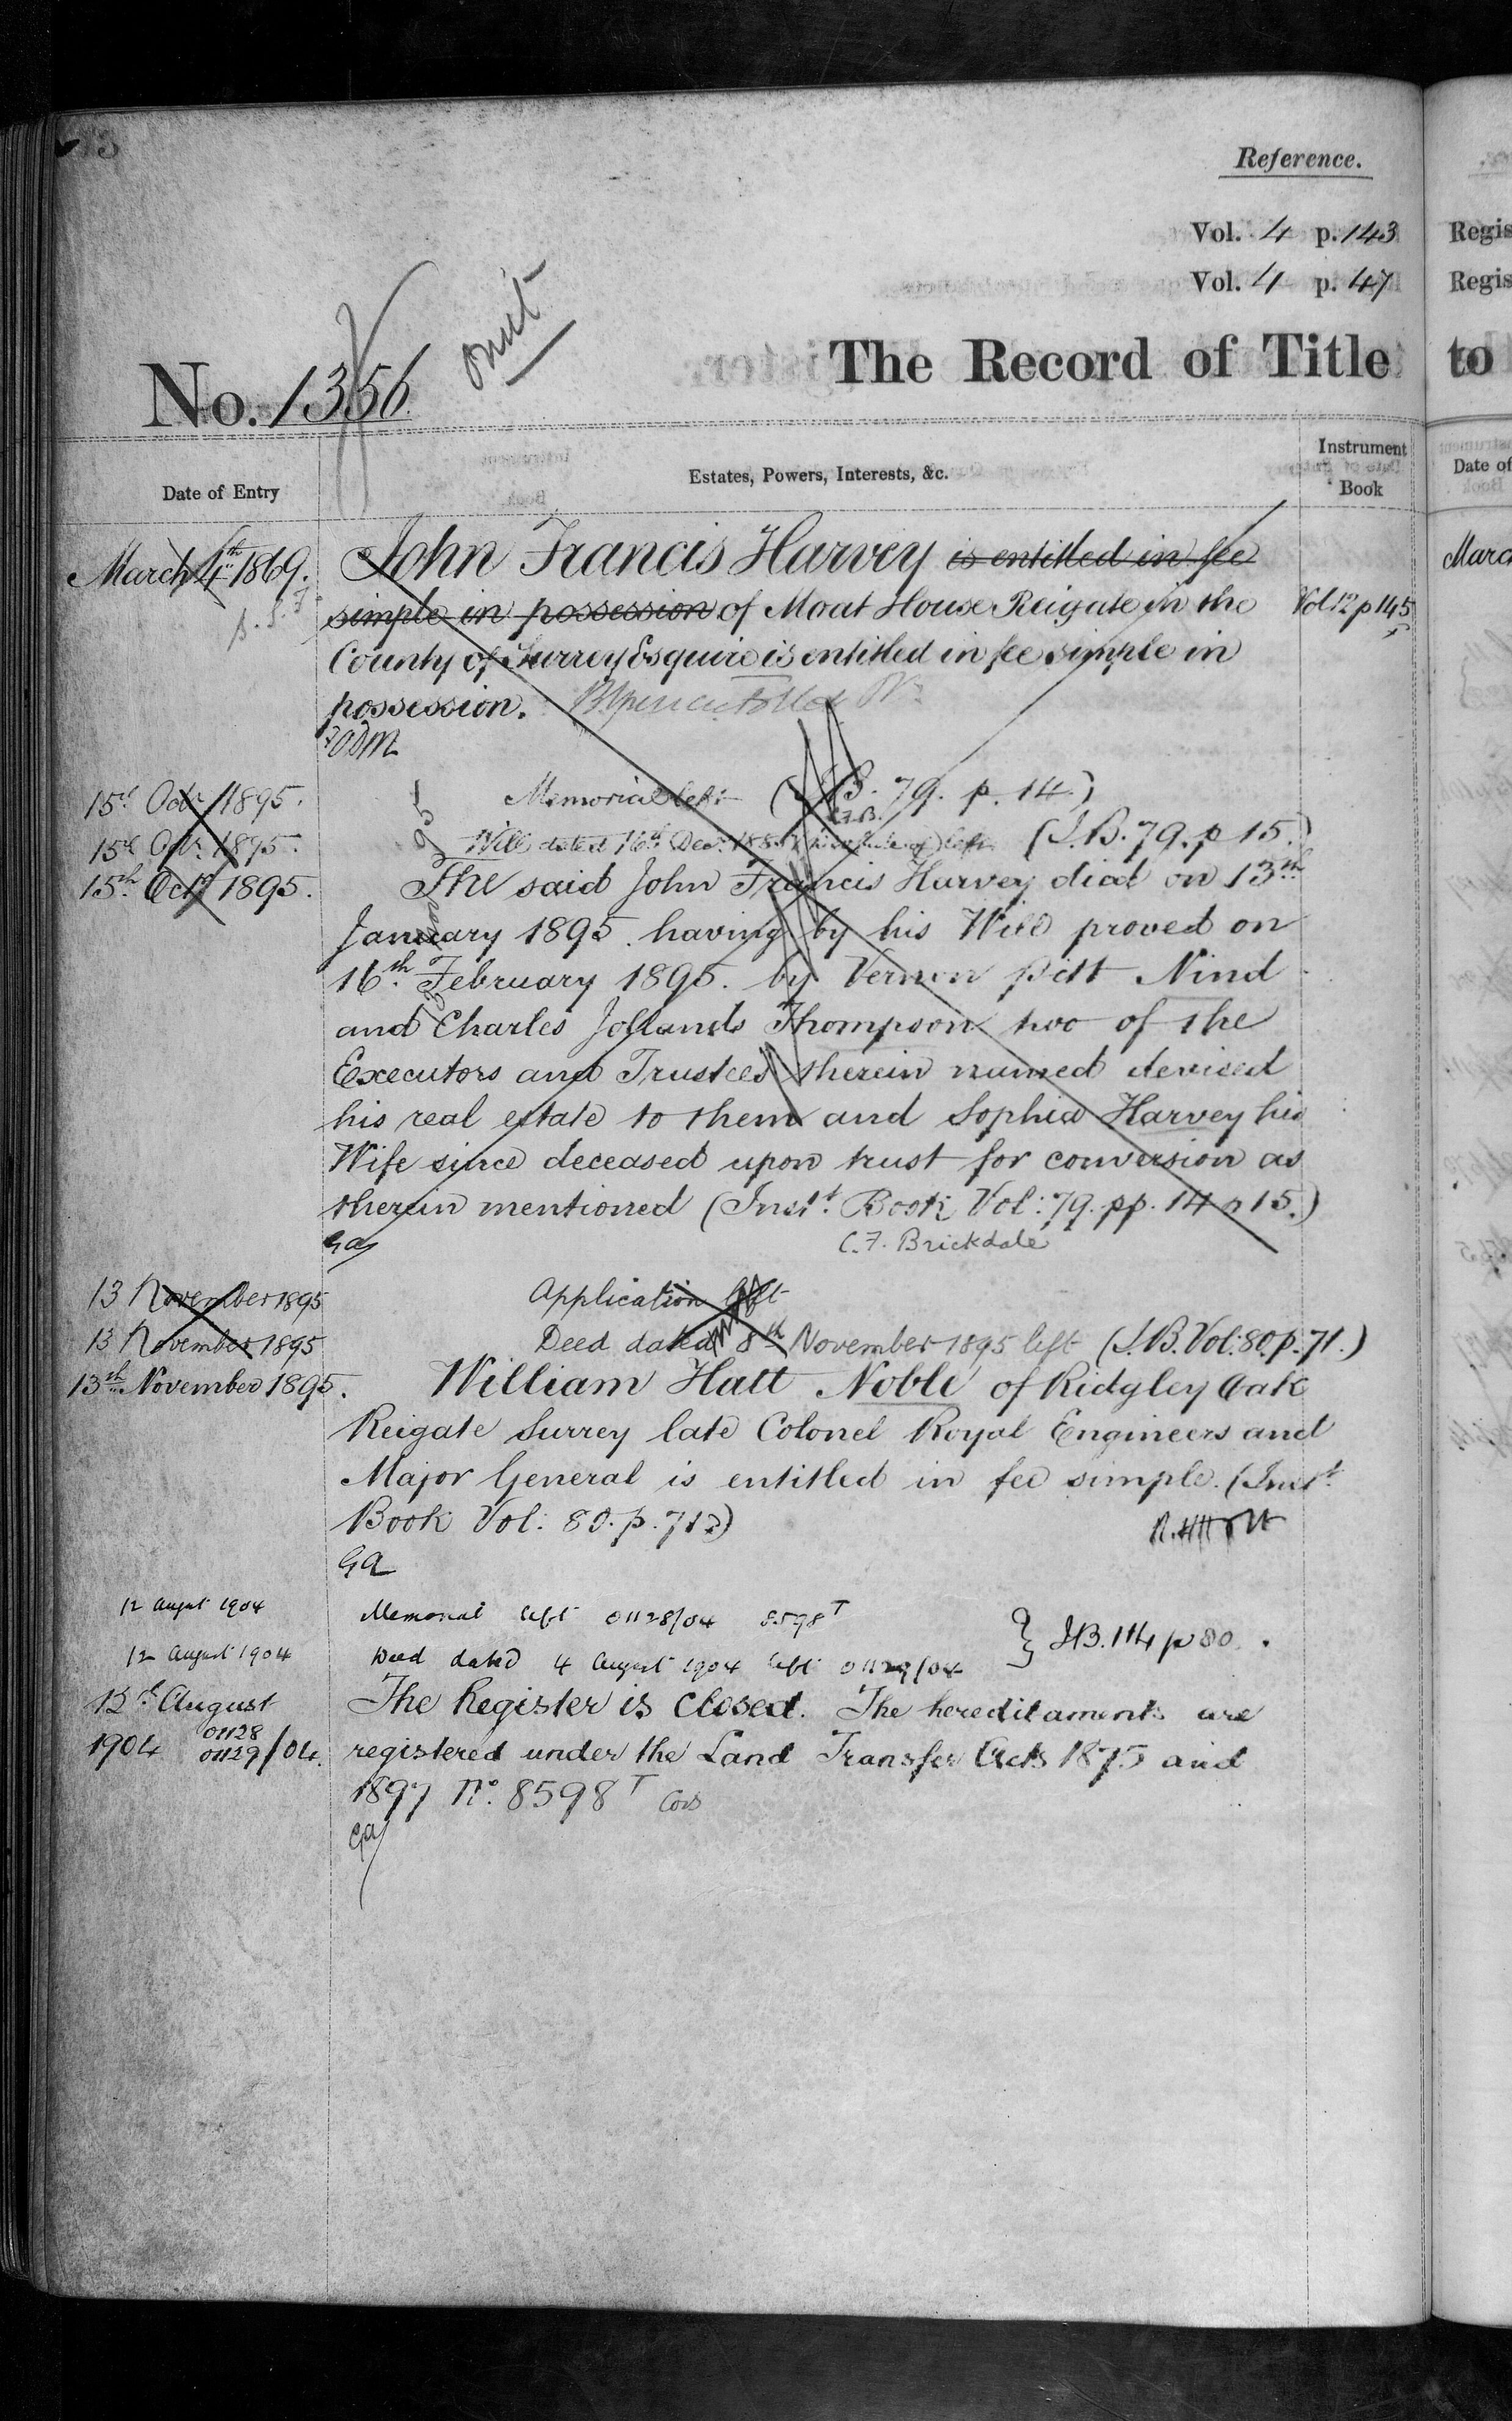 Reference.
Vol. 4 p. 143
Vol. 4 p. 47
No. 1356. omit
The Record of Title to
Date of Entry
Estates, Powers, Interests, &c.
Instrument Book
March 4th 1869. John Francis Harvey is entitled in fee
simple in possession of Moat House Reigate in the Vol 12 p 145
County of Surrey Esquire is entitled in fee simple in
possession.
15th Octr. 1895. Memorial left (I.B. 79. p. 14.)
15th Octr. 1895. Will dated 16th Decr. left (I.B. 79. p 15.)
15th Octr 1895. The said John Francis Harvey died on 13th
January 1895. having by his Will proved on
16th February 1895. by Vernon Pitt Nind
and Charles Jollands Thompson two of the
Executors and Trustees therein named devised
his real estate to them and Sophia Harvey his
Wife since deceased upon trust for conversion as
therein mentioned (Instt. Book Vol: 79. pp. 14 & 15.)
C. F. Brickdale
13 November 1895 Application left
13 November 1895 Deed dated 8th November 1895 left (I.B. Vol: 80. p. 71.)
13th November 1895. William Hatt Noble of Ridgley Oak
Reigate Surrey late Colonel Royal Engineers and
Major General is entitled in fee simple. (Instt.
Book Vol: 80. p. 71.)
GA
12 August 1904 Memorial left 01128/04 8598T
12 August 1904 Deed dated 4 August 1904 left 01129/04 } I.B. 114 p 80.
12th August The Register is closed. The hereditaments are
1904 01128 01129/04. registered under the Land Transfer Acts 1875 and
1897 No. 8598T
Regis
Regis
Date of
March